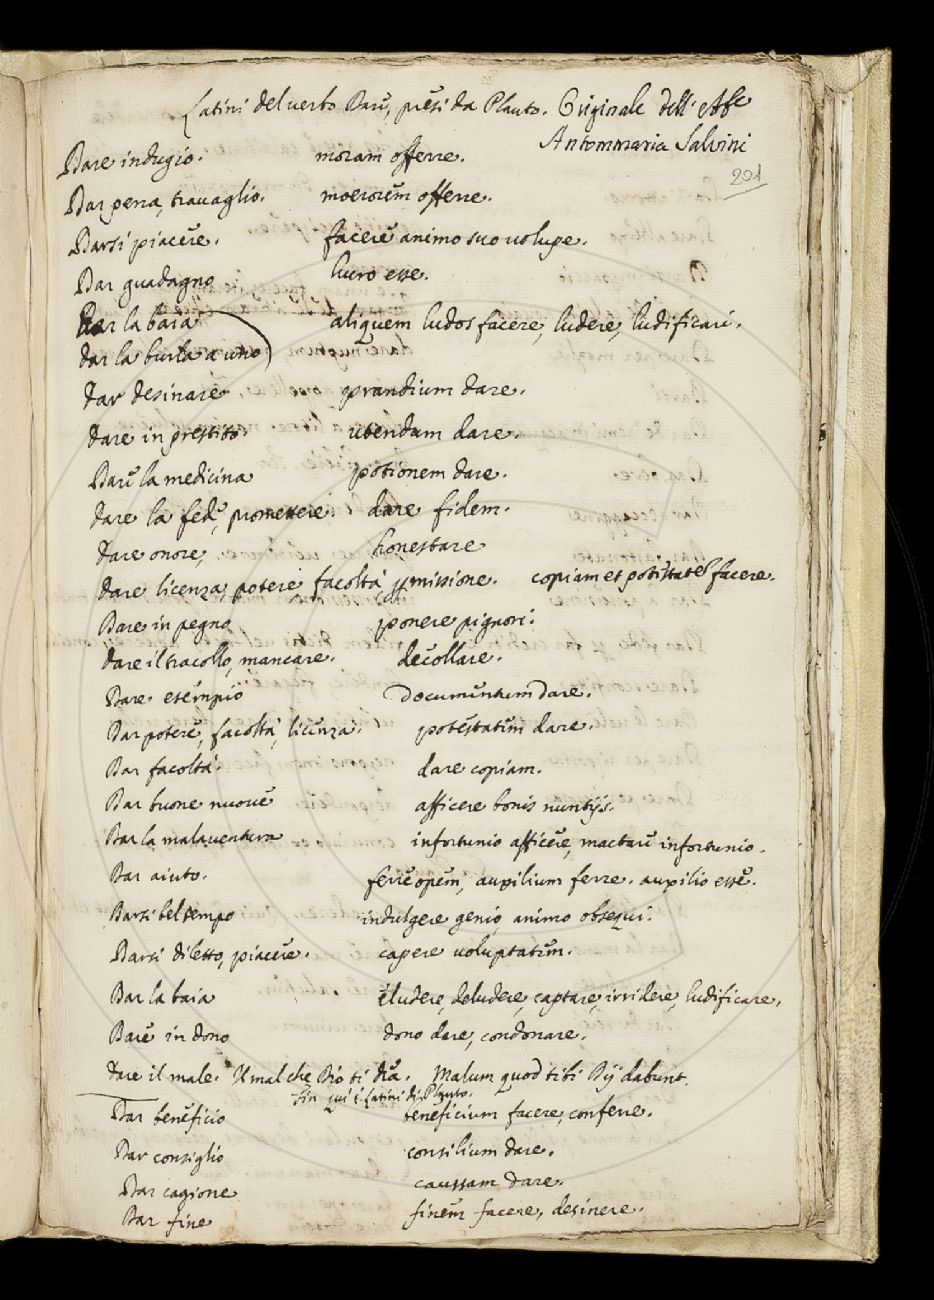 Latini del verbo Dare, presi da Plauto. Originale dell' Abe
Antommaria Salvini
201
Dare indugio. moram offerre.
Dar pena, travaglio. moerorem offerre.
Darsi piacere. facere animo suo volupe.
Dar guadagno lucro esse.
Dar la baia aliquem ludos facere, ludere, ludificari.
dar la burla a uno
dar desinare prandium dare.
dare in prestito. utendum dare.
Dare la medicina potionem dare.
dare la fede, promettere. dare fidem.
dare onore, honestare
dare licenza, potere facoltà permissione. copiam et potestatem facere.
Dare in pegno ponere pignori.
dare il tracollo, mancare. decollare.
Dare esempio Documentum dare.
Dar potere, facoltà, licenza. potestatem dare.
Dar facoltà. dare copiam.
Dar buone nuove afficere bonis nuntijs.
Dar la malaventura infortunio afficere, mactare infortunio.
Dar aiuto. ferre opem, auxilium ferre. auxilio esse.
Darsi bel tempo indulgere genio, animo obsequi.
Darsi diletto, piacere. capere voluptatem.
Dar la baia eludere, deludere, captare, irridere, ludificare,
Dare in dono dono dare, condonare.
Dare il male. Il mal che Dio ti dia. Malum quod tibi Dij dabunt.
Fin qui i Latini di Plauto.
Dar beneficio beneficium facere, conferre.
Dar consiglio consilium dare.
Dar cagione caussam dare.
Dar fine finem facere, desinere.